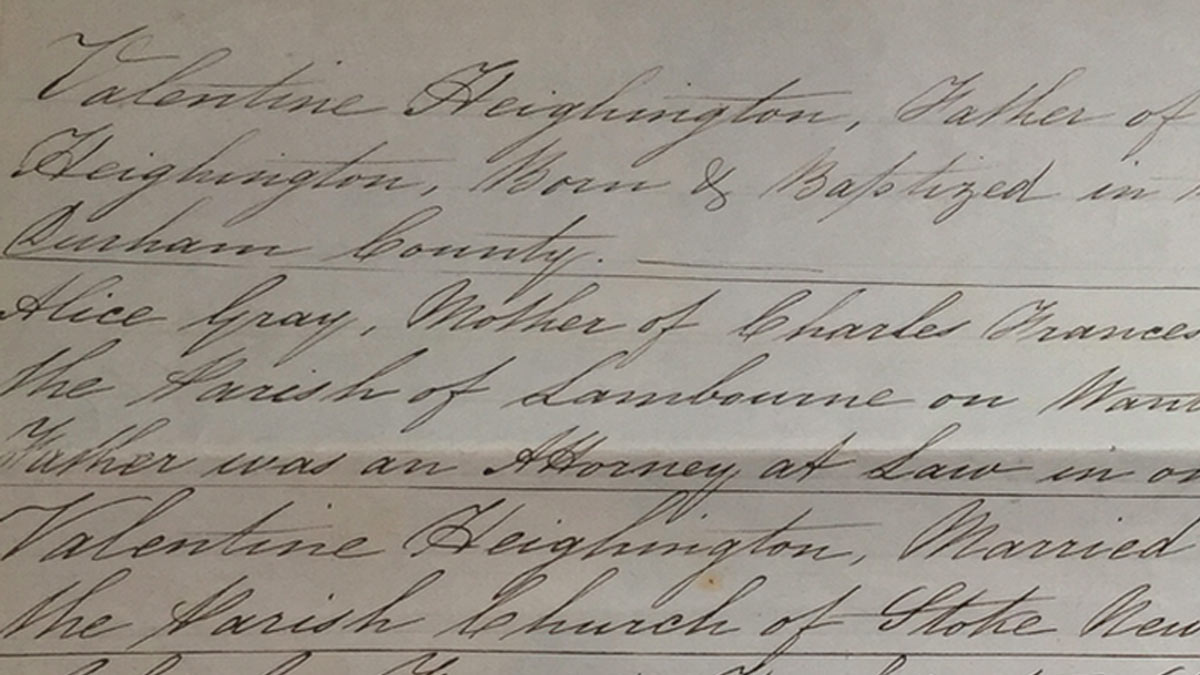 Valentine Heighington, Father of
Heighington, Born & Baptized in
Durham County.
Alice Gray, Mother of Charles Frances
the Parish of Lambourne on
Father was an Attorney at Law in
Valentine Heighington, Married
the Parish Church of Stoke New